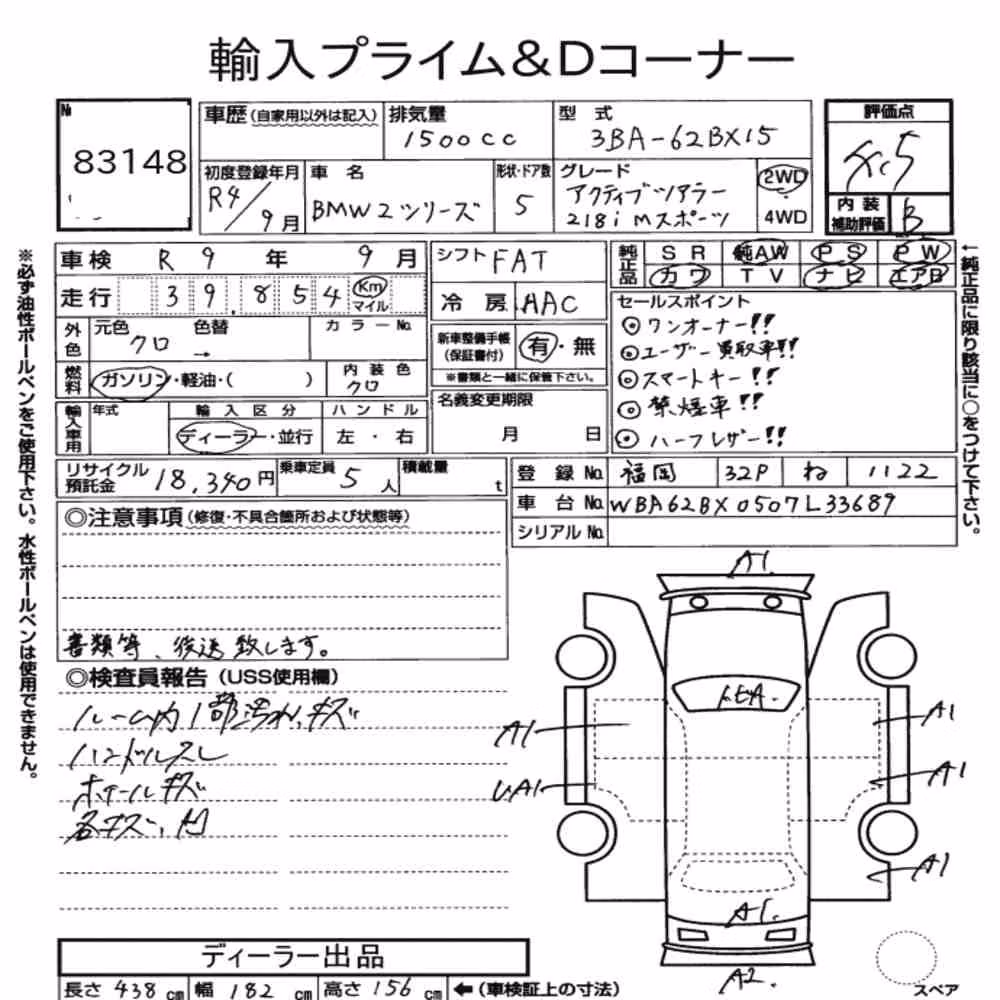 輸入プライム&Dコーナー
№ 83148
車歴(自家用以外は記入)
排気量 1500cc
型式 3BA-62BX15
評価点
初度登録年月 R4/9月
車名 BMW2シリーズ
形状・ドア数 5
グレード アクティブツアラー 218i Mスポーツ
2WD
4WD
内装補助評価 B
車検 R9年 9月
シフト FAT
純正品 SR 純AW PS PW
カワ TV ナビ エアB
走行 39,854 Km マイル
冷房 AAC
セールスポイント
◎ワンオーナー!!
◎ユーザー買取車!!
◎スマートキー!!
◎禁煙車!!
◎ハーフレザー!!
外色 元色 クロ 色替 → カラーNo.
新車整備手帳(保証書付) 有・無
※書類と一緒に保管下さい。
燃料 ガソリン・軽油・( )
内装色 クロ
名義変更期限 月 日
輸入車用 年式 輸入区分 ハンドル
ディーラー・並行 左・右
リサイクル預託金 18,340円
乗車定員 5人
積載量 t
登録No. 福岡 32P ね 1122
車台No. WBA62BX0507L33689
シリアルNo.
◎注意事項(修復・不具合箇所および状態等)
書類等、後送致します。
◎検査員報告(USS使用欄)
ルーム内1部汚れ、キズ
ハンドルスレ
ホイールキズ
各キズ、凹
A1.
トビA.
A1
A1
UA1
A1
A1
A1.
A2.
スペア
ディーラー出品
長さ 438cm 幅 182cm 高さ 156cm ←(車検証上の寸法)
※必ず油性ボールペンをご使用下さい。水性ボールペンは使用できません。
←純正品に限り該当に○をつけて下さい。